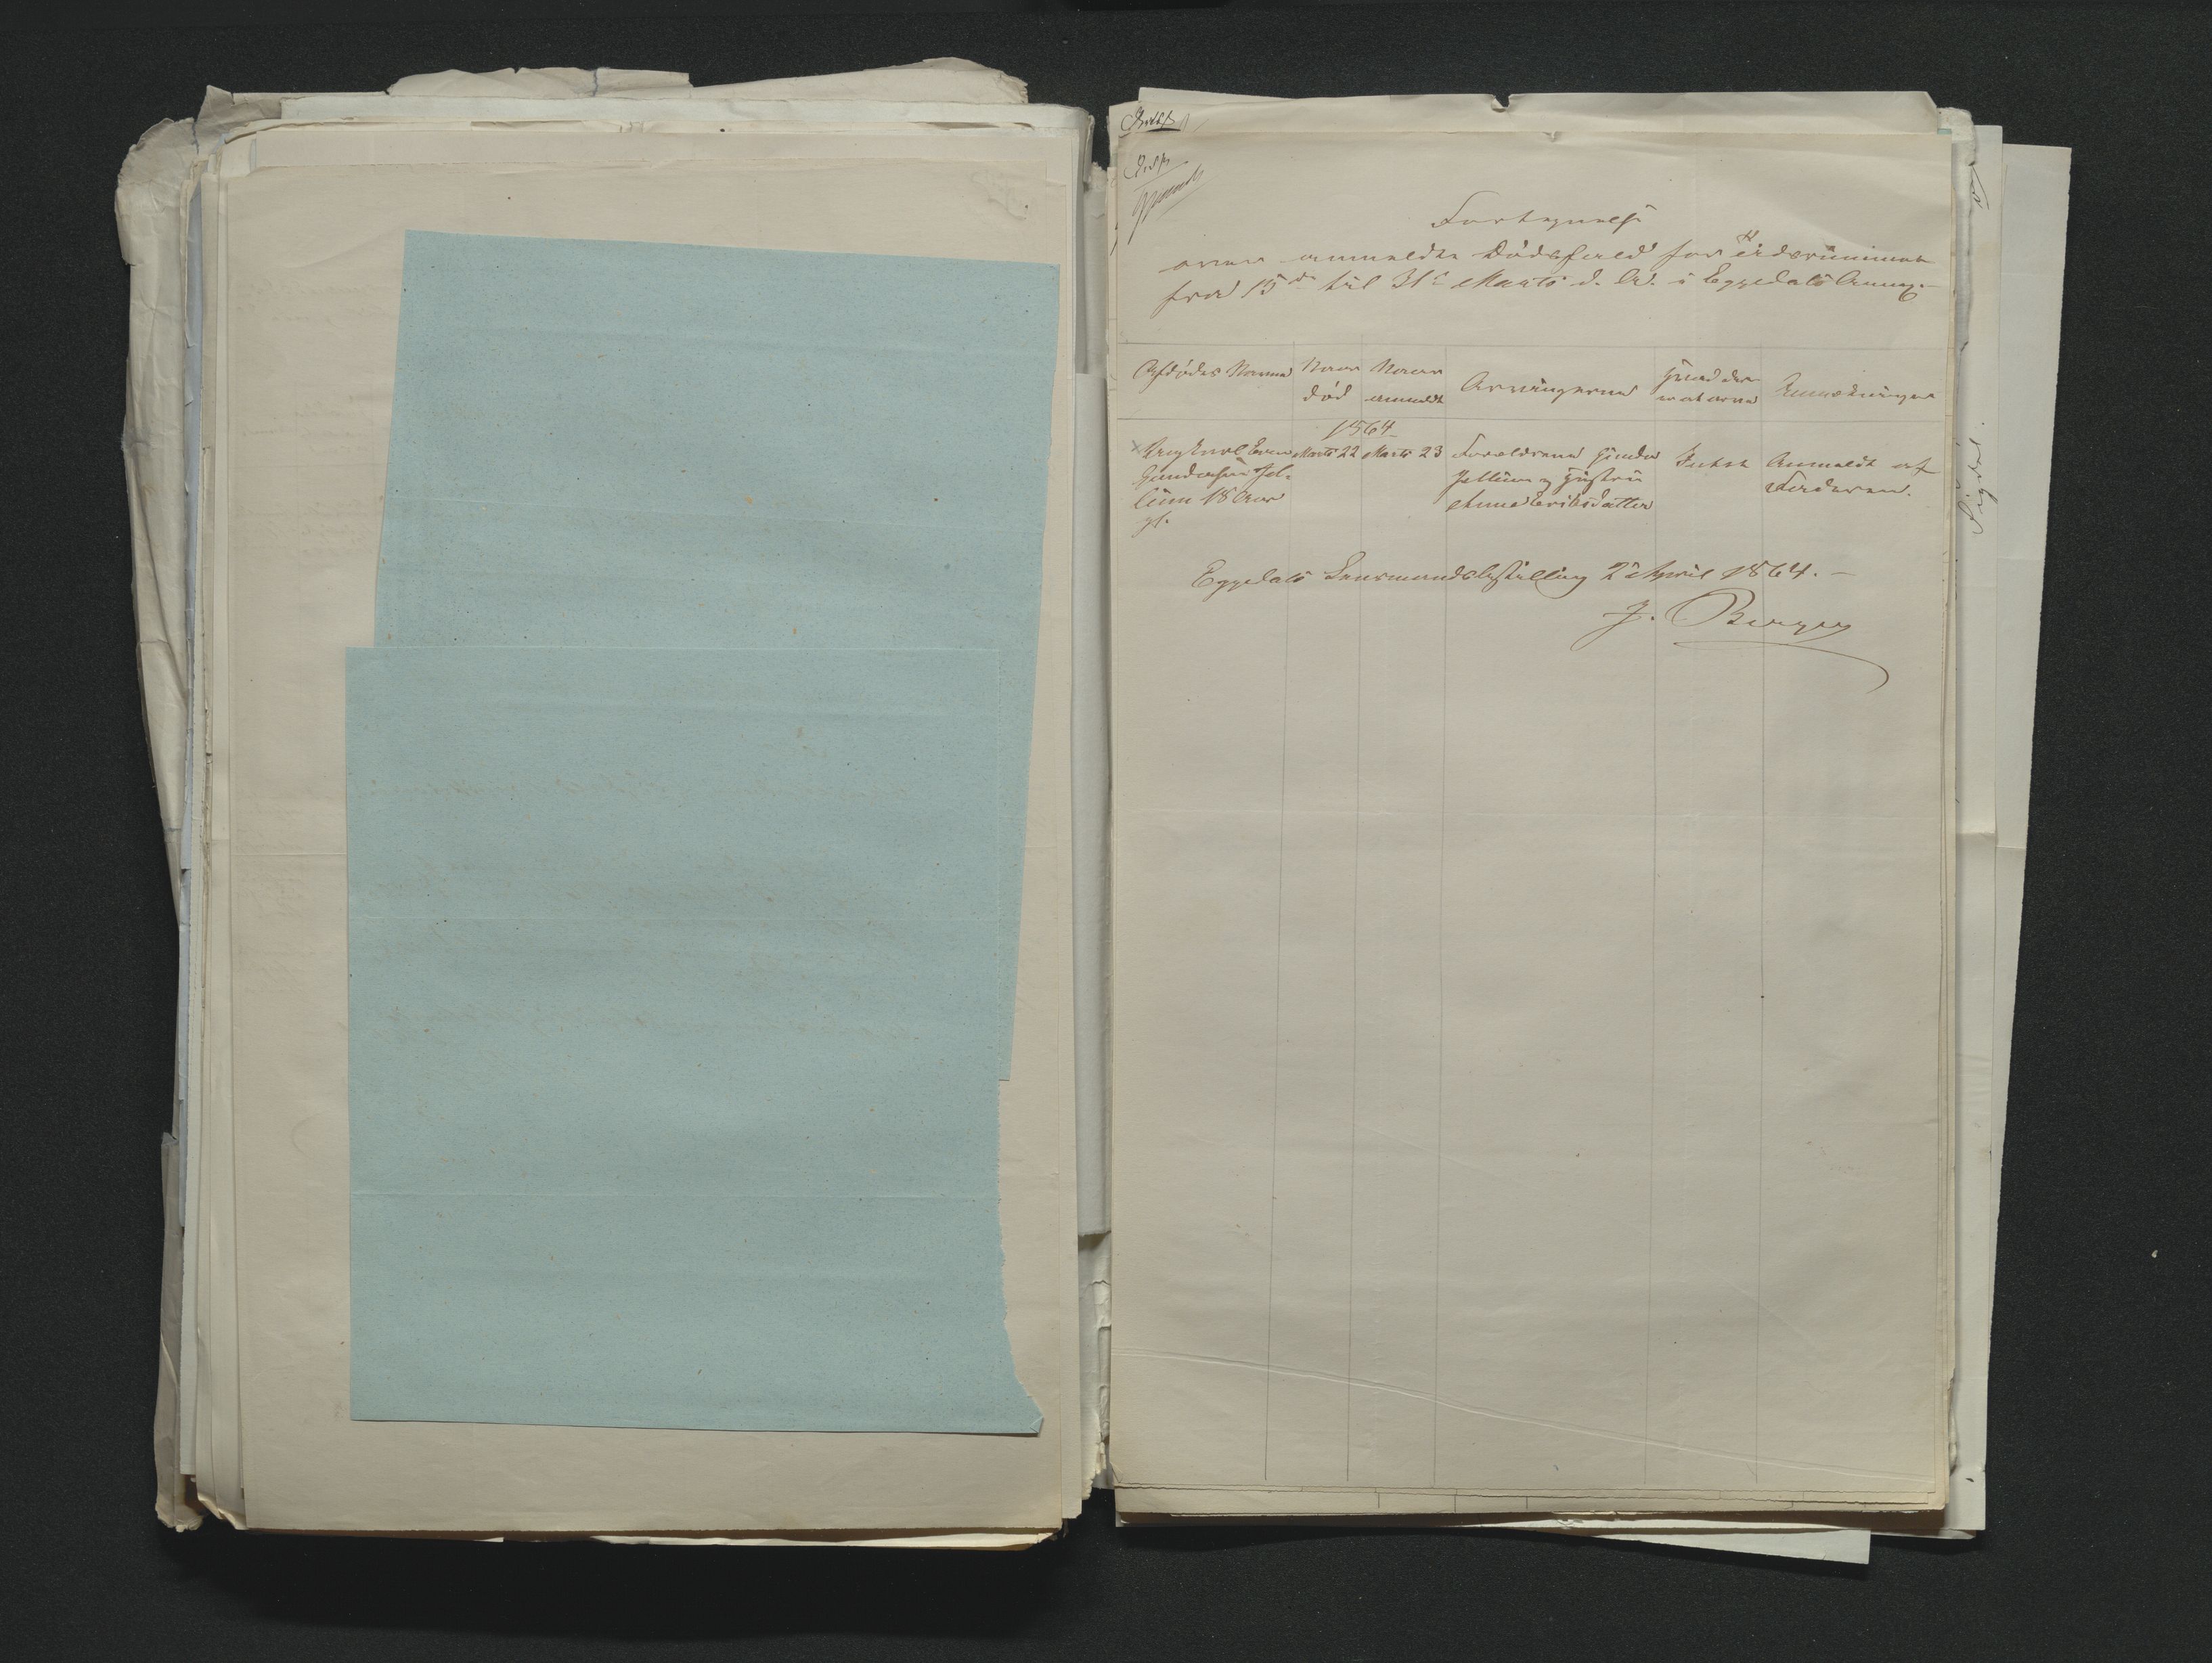 Fortegnelse
over anmeldte Dødsfald for Tidsrummet
fra 15de til 31te Marts d. A. i Eggedals Annex.
Afdødes Navne
Naar død
Naar anmeldt
Arvingerne
Hvad der er at arve
Anmærkninger
1864
Ungkarl Even
Gundersen Jel-
lum 18 Aar
gl.
Marts 22
Marts 23
Forældrene Gunder
Jellum og Hustru
Anne Eriksdatter
Intet
Anmeldt af
Faderen.
Eggedals Lensmandsbestilling 2 April 1864.
J. Berger